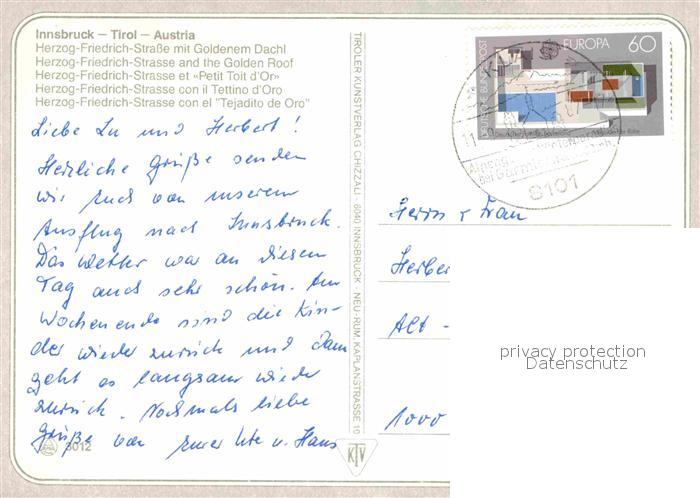 Innsbruck – Tirol – Austria
Herzog-Friedrich-Straße mit Goldenem Dachl
Herzog-Friedrich-Strasse and the Golden Roof
Herzog-Friedrich-Strasse et «Petit Toit d'Or»
Herzog-Friedrich-Strasse con il Tettino d'Oro
Herzog-Friedrich-Strasse con el "Tejadito de Oro"
Liebe Lu und Herbert!
Herzliche Grüße senden
wir Euch von unserem
Ausflug nach Innsbruck.
Das Wetter war an diesem
Tag auch sehr schön. Am
Wochenende sind die Kin-
der wieder zurück und dann
geht es langsam wieder
zurück. Nochmals liebe
Grüße von Eurer Ute u. Hans
3012
TIROLER KUNSTVERLAG CHIZZALI · 6040 INNSBRUCK - NEU-RUM, KAPLANSTRASSE 10
KTV
DEUTSCHE BUNDESPOST
EUROPA 60
11
8101
Herrn u Frau
Herber
Alt -
1000
privacy protection
Datenschutz